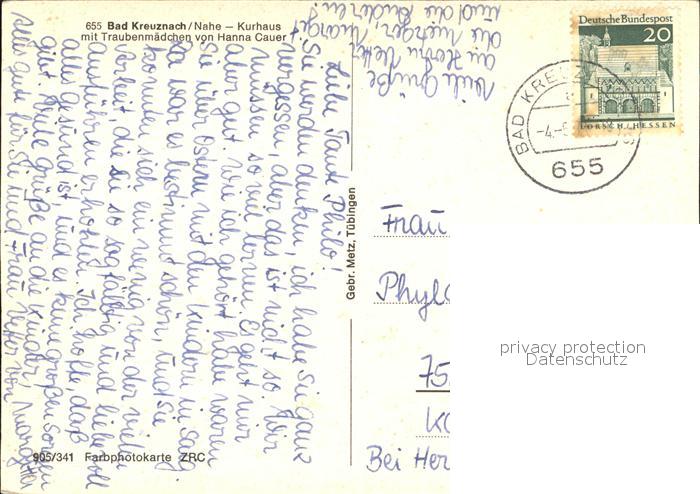 655 Bad Kreuznach/Nahe — Kurhaus
mit Traubenmädchen von Hanna Cauer
Liebe Tante Philo!
Sie werden denken, ich habe Sie ganz
vergessen, aber das ist nicht so. Wir
müssen so viel lernen. Es geht mir
aber gut. Wie ich gehört habe waren
Sie über Ostern mit den Kindern in
Da war es bestimmt schön, und Sie
konnten sich ein wenig von der vielen
Arbeit, die Sie so sorgfältig und liebevoll
ausführen erholen. Ich hoffe, daß
alle gesund ist, und es keine großen Sorgen
gibt. Viele Grüße an die Kinder,
alles gute für Sie und Frau Vetter von Margret
Viele Grüße
an Herrn Vetter
die Margret
und die Kinder!
Deutsche Bundespost
20
LORSCH/HESSEN
BAD KREUZ
-4.-
655
Gebr. Metz, Tübingen
Frau
Phyl
75
Ka
Bei Her
privacy protection
Datenschutz
905/341 Farbphotokarte ZRC